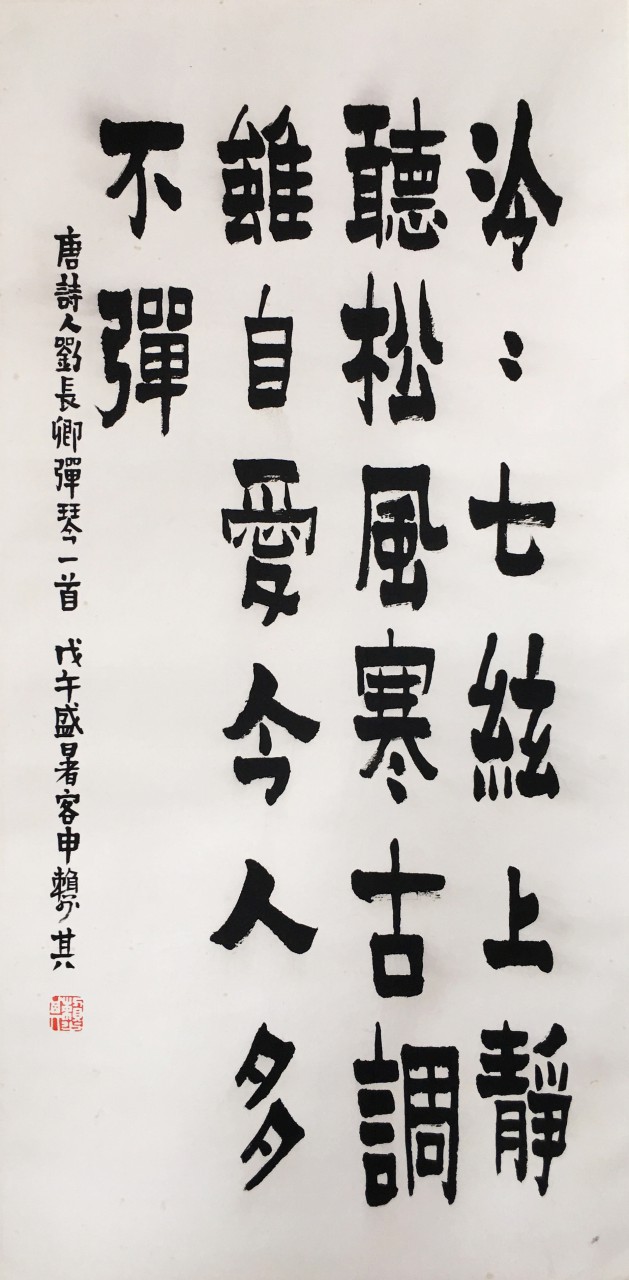 泠〻七絃上靜
聽松風寒古調
雖自愛今人多
不彈
唐詩人劉長卿彈琴一首 戊午盛暑客申賴少其